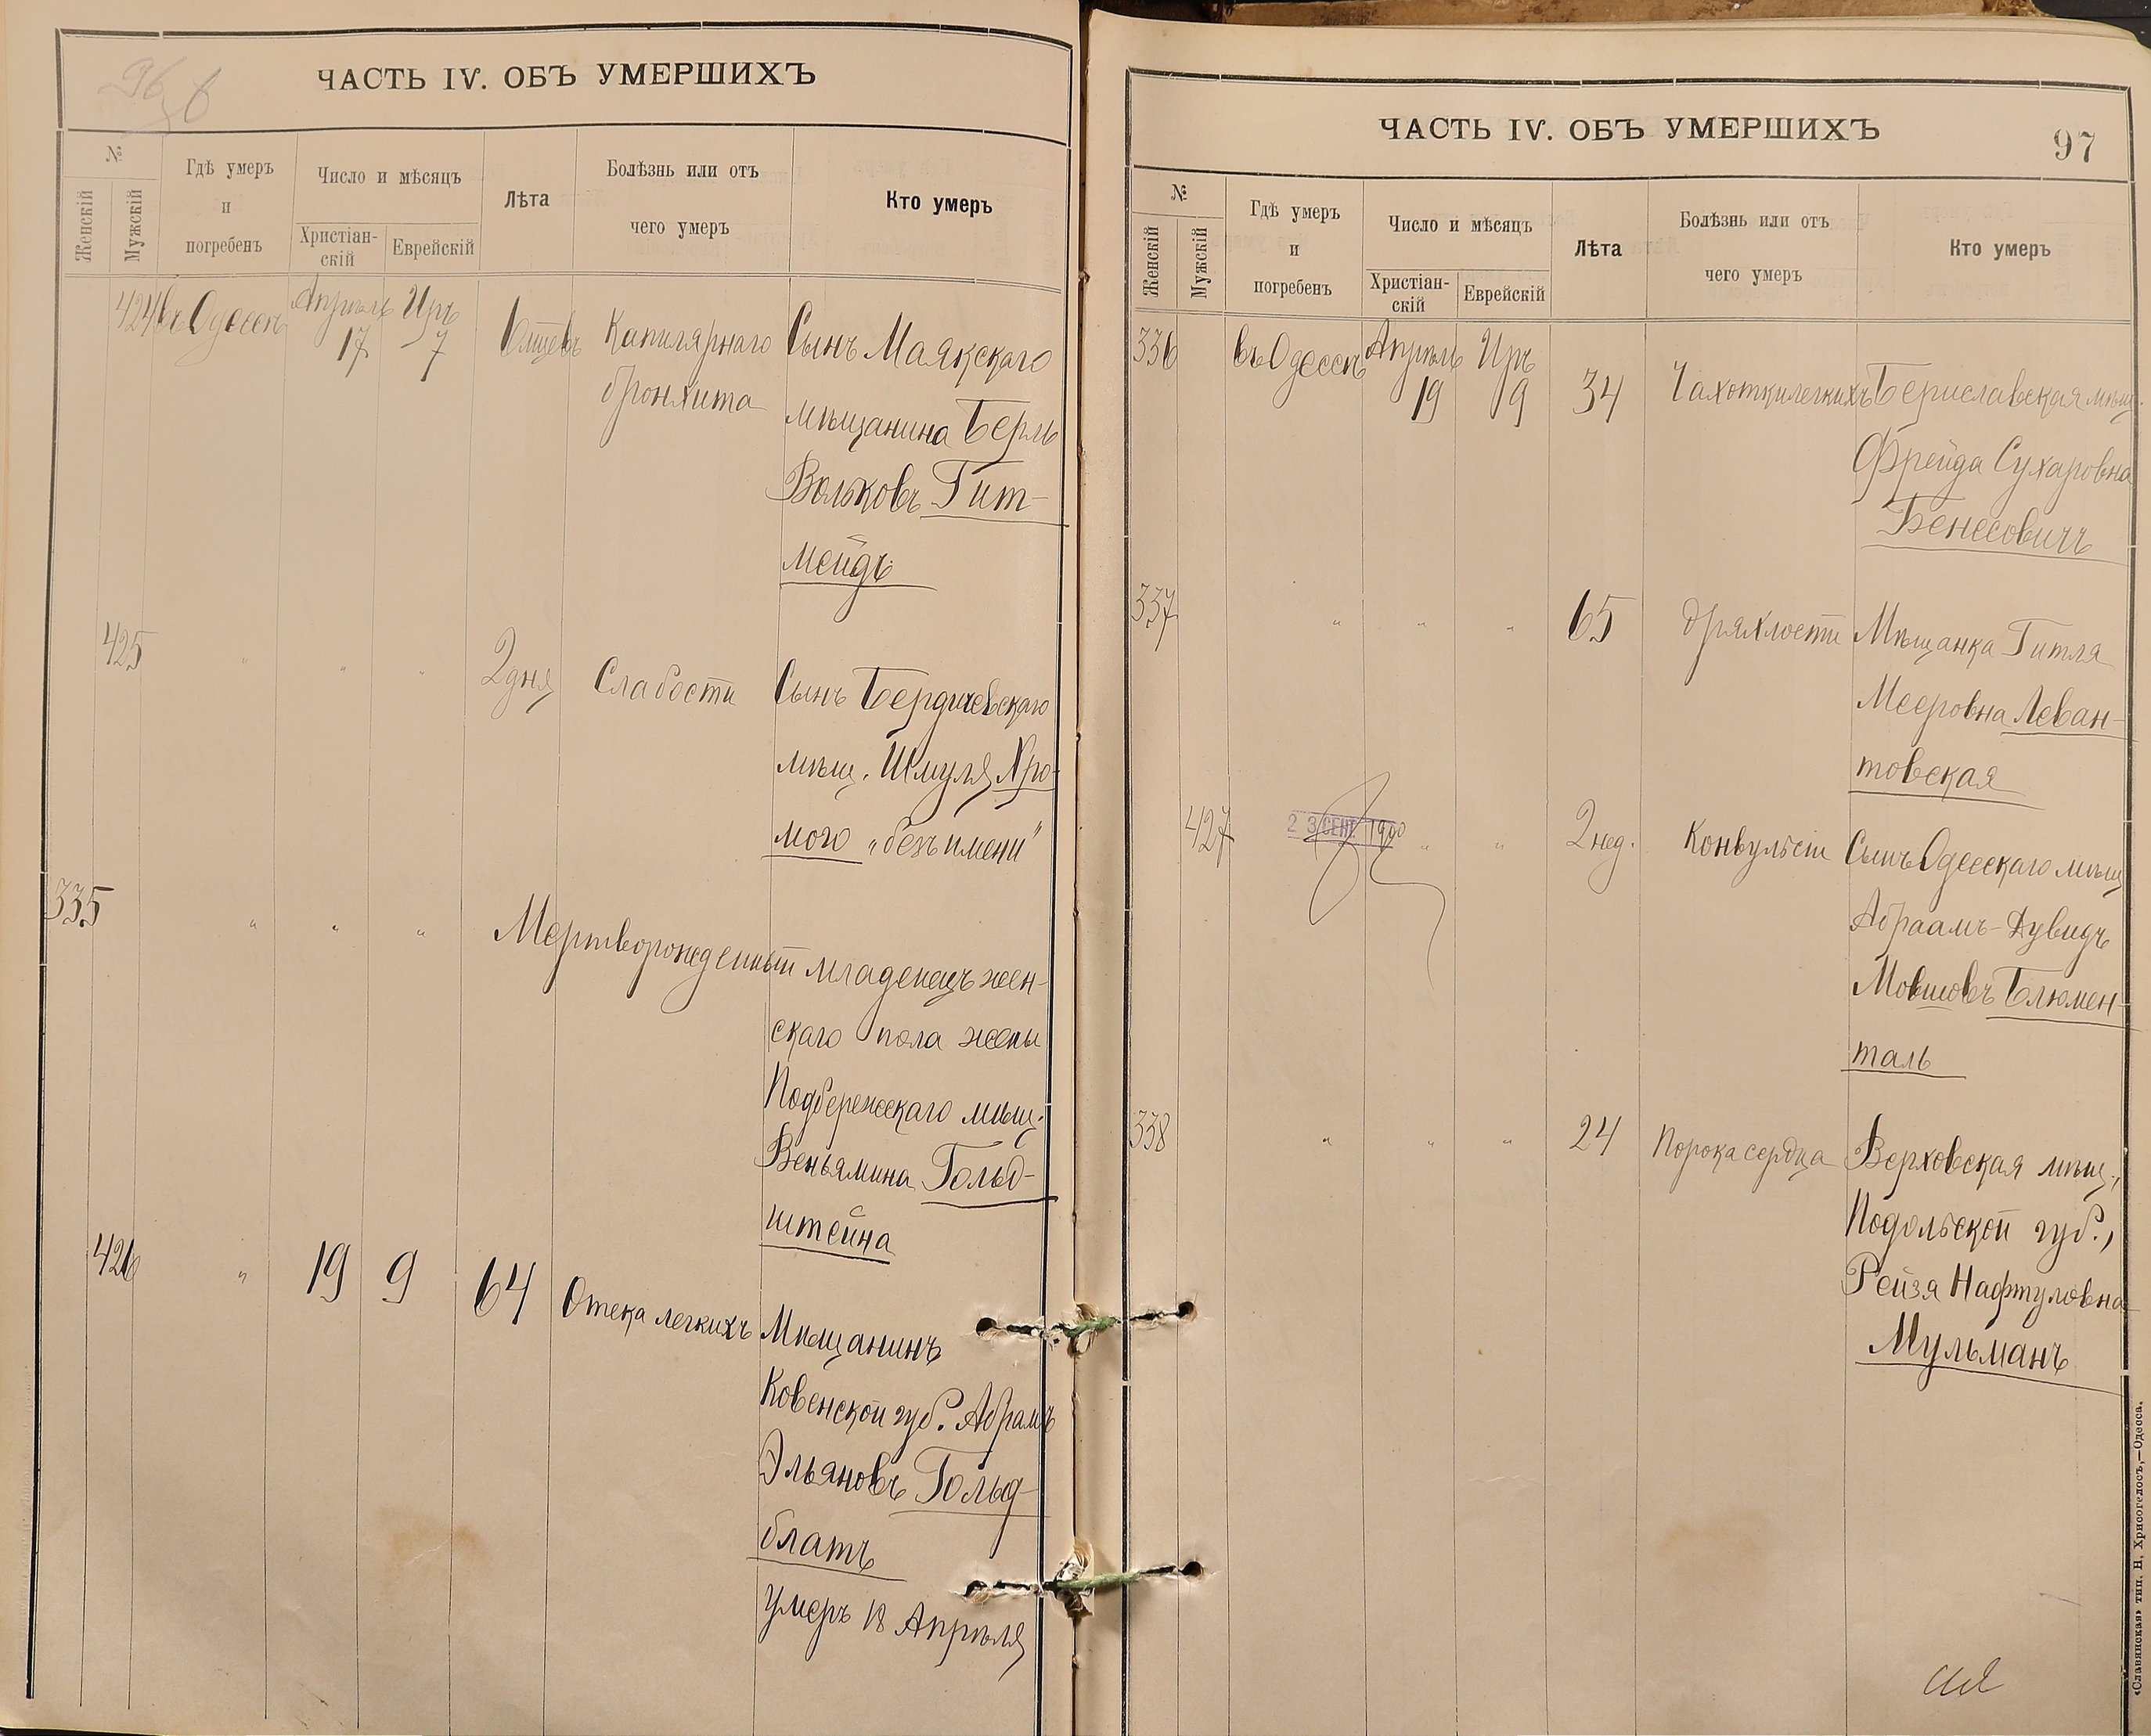 96 б
ЧАСТЬ IV. ОБЪ УМЕРШИХЪ
№
Женскій
Мужскій
Гдѣ умеръ
и
погребенъ
Число и мѣсяцъ
Христіан-
скій
Еврейскій
Лѣта
Болѣзнь или отъ
чего умеръ
Кто умеръ
424 въ Одессѣ Апрѣль 17 Іиръ 7
Капилярнаго
бронхита
Сынъ Маякскаго
мѣщанина Беръ
Вольковъ Гит-
мейдъ
425 " " " 2 дня Слабости
Сынъ Бердичевскаго
мѣщ. Шмуля Хро-
мого „безъ имени"
335 " " " Мертворожденный младенецъ жен-
скаго пола жены
Подбережскаго мѣщ.
Веньямина Гольд-
штейна
426 " 19 9 64 Отека легкихъ
Мѣщанинъ
Ковенской губ. Абрамъ
Эльяновъ Гольд-
блатъ
Умеръ 18 Апрѣля
ЧАСТЬ IV. ОБЪ УМЕРШИХЪ
97
№
Женскій
Мужскій
Гдѣ умеръ
и
погребенъ
Число и мѣсяцъ
Христіан-
скій
Еврейскій
Лѣта
Болѣзнь или отъ
чего умеръ
Кто умеръ
336 въ Одессѣ Апрѣль 19 Іиръ 9 34 Чахотки легкихъ
Бериславская мѣщ.
Фрейда Сухаровна
Бенесовичъ
337 " " " 65 дряхлости
Мѣщанка Гитля
Мееровна Леван-
товская
427 23 СЕНТ 1900 " " 2 нед. Конвульсіи
Сынъ Одесскаго мѣщ
Абраамъ-Дувидъ
Мовшовъ Блюмен-
таль
338 " " " 24 Порока сердца
Верховская мѣщ.,
Подольской губ.,
Рейзя Нафтуловна
Мульманъ
«Славянская» тип. Н. Хрисогелосъ,—Одесса.